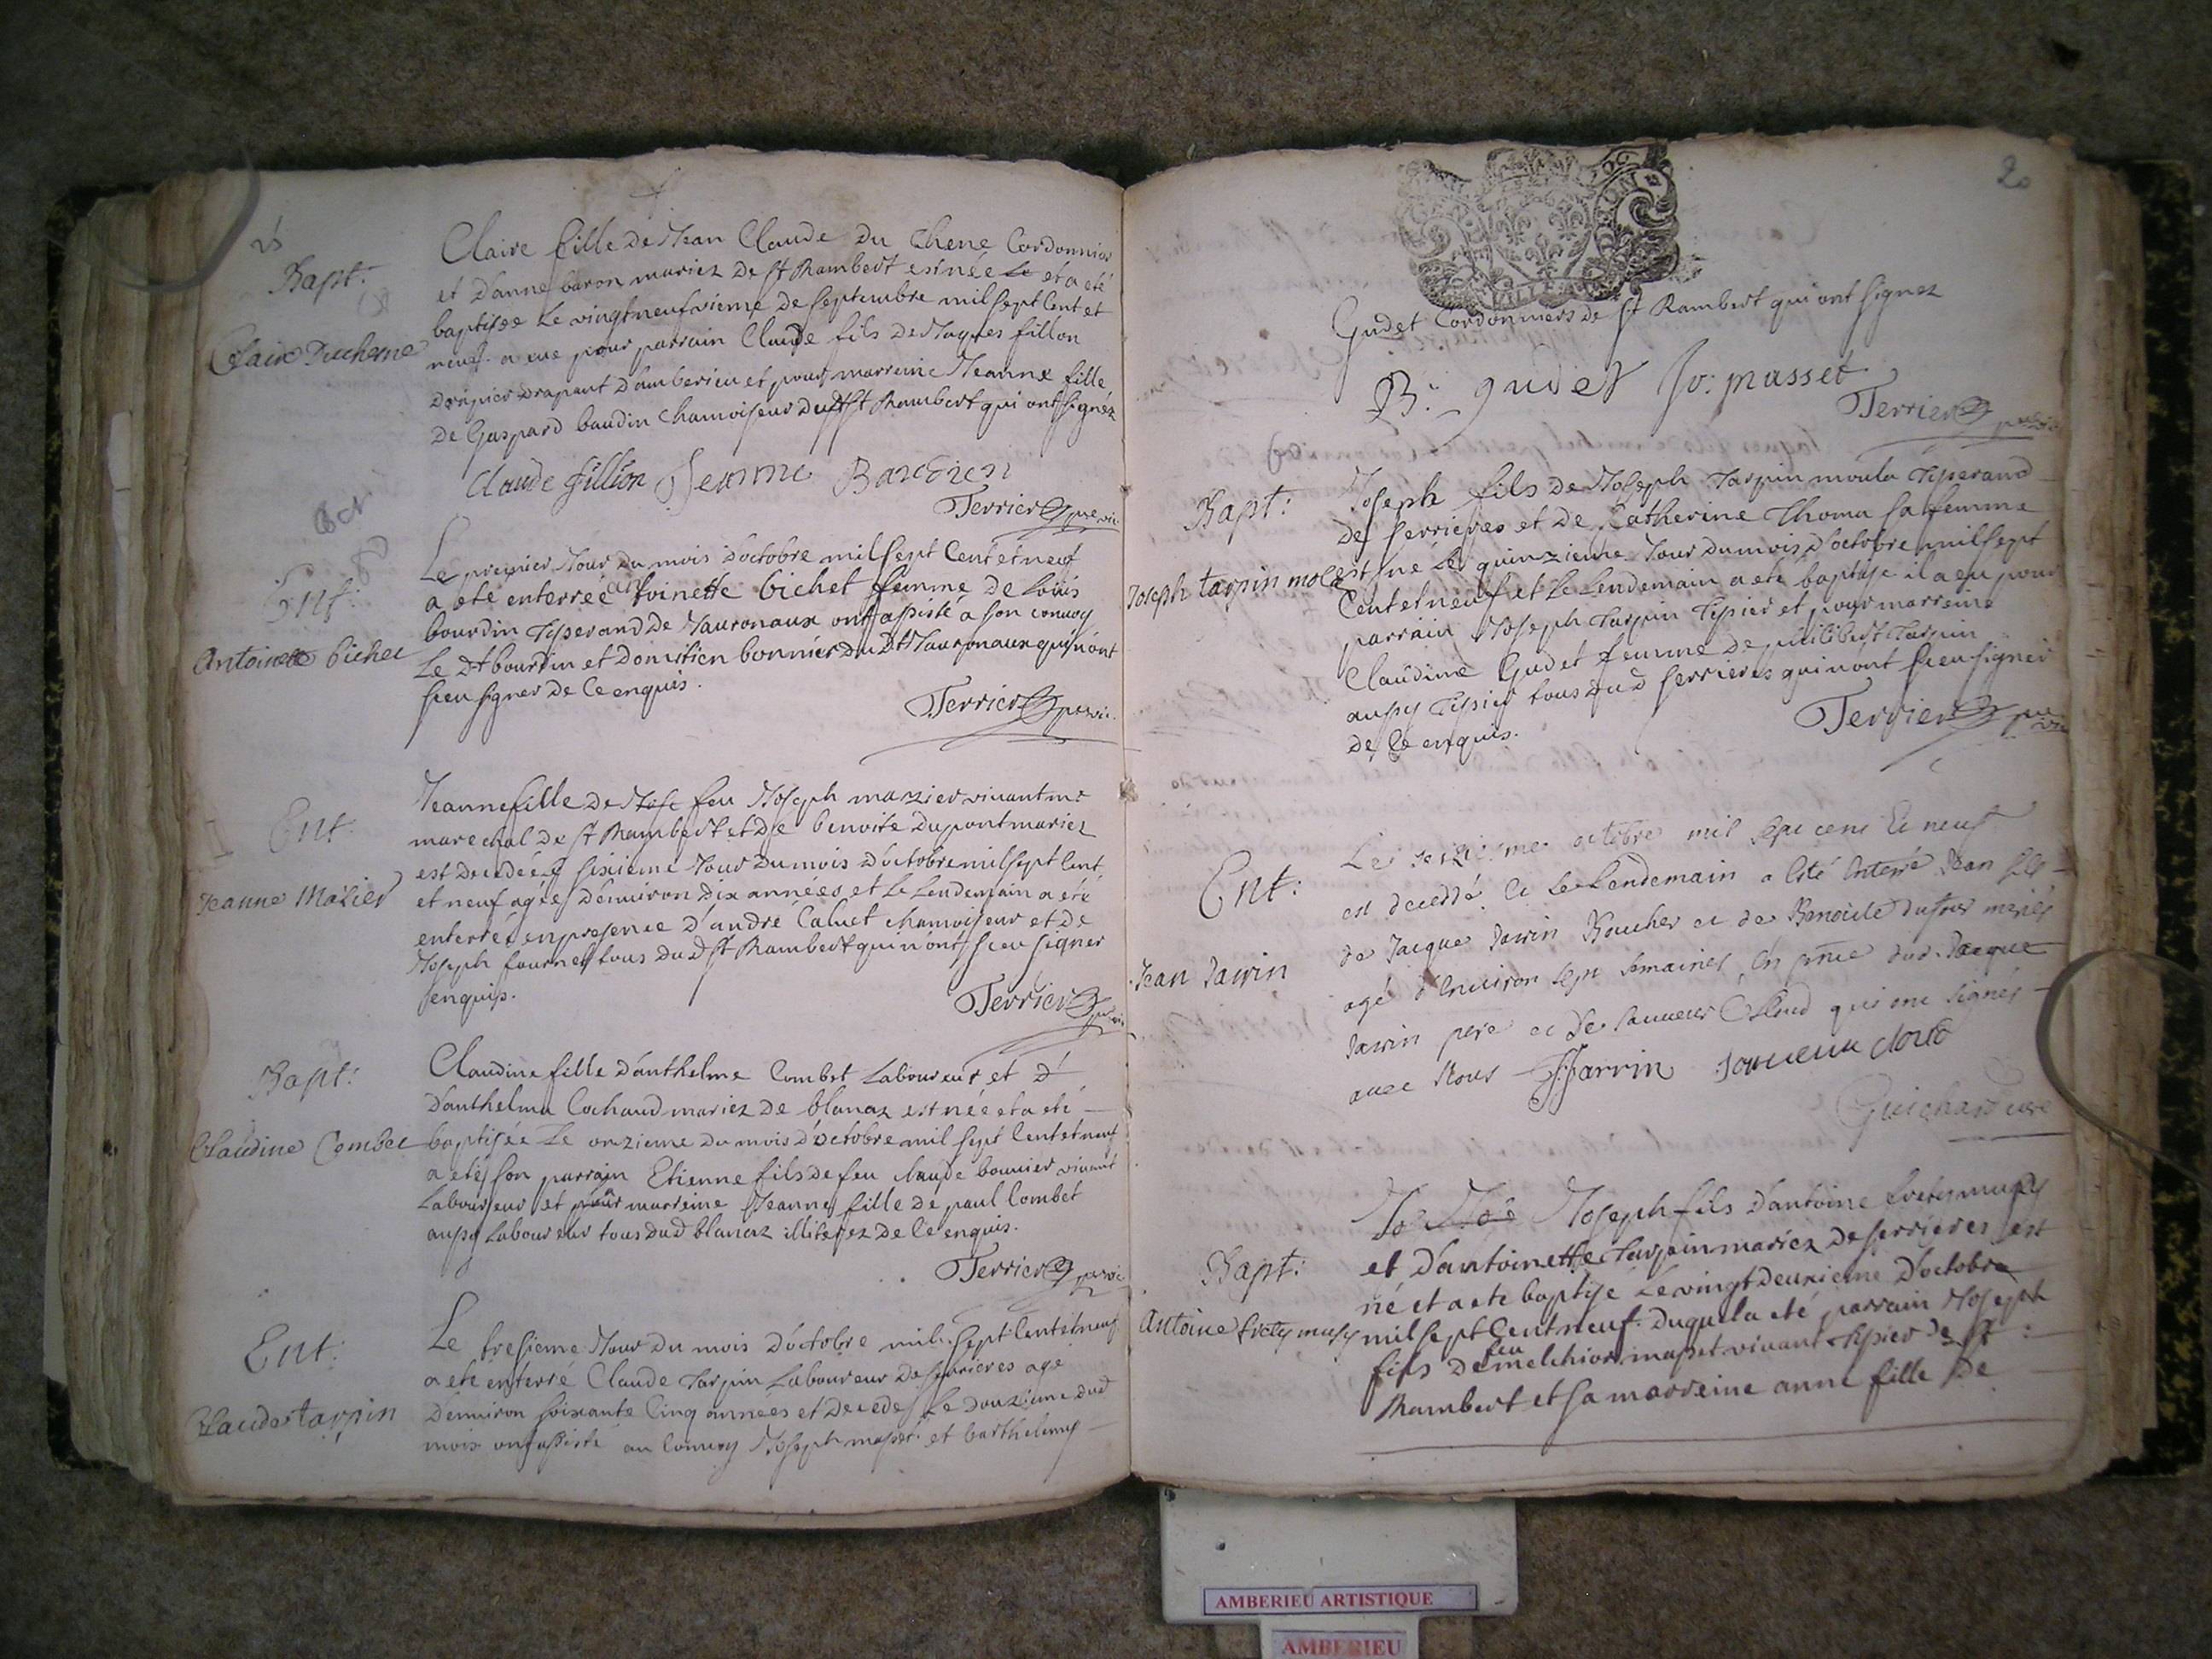 Bapt:
Claire Ducherne
Claire fille de Jean Claude du Chene Cordonnier
et d'anne baron mariez de st Rambert est née le et a eté
baptisée le vingt neufvieme de septembre mil sept cent et
neuf. a eue pour parrain Claude fils de Jaques fillon
drapier drapant d'amberieu et pour marreine Jeanne fille
de Gaspard baudin chamoiseur dudt st Rambert qui ont signéz
Claude fillion Jeanne
Terrier pre vic
Oct
8
Ent:
Antoinette bichet
Le premier Jour du mois d'octobre mil sept Cent et neuf
a eté enterrée antoinette bichet femme de Louis
bourdin tisserand de Javronaux ont assisté a son convoy
Le dt bourdin et domitien bonnier du dt Javronaux qui n'ont
sceu signer de ce enquis.
Terrier pre vic.
Ent:
Jeanne Mazier
Jeanne fille de Jose feu Joseph mazier vivant mr
marechal de st Rambert et de benoite Dupont mariez
est decedée le sixieme Jour du mois d'octobre mil sept Cent
et neuf agées d'environ dix années et le lendemain a eté
enterrée en presence d'andré Caluet chamoiseur et de
Joseph fournet tous du dt st Rambert qui n'ont sceu signer
enquis.
Terrier pre vic
Bapt:
Claudine Combet
Claudine fille d'anthelme Combet Laboureur et d'
d'anthelma Cochaud mariez de blanaz est née et a eté
baptisée Le onzieme du mois d'octobre mil sept Cent et neuf
a eté son parrain Etienne fils de feu claude bouvier vivant
Laboureur et pour marreine Jeanne fille de paul Combet
aussy Laboureur tous dud blanaz illiterez de ce enquis.
Terrier pre vic
Ent:
Claude tarpin
Le tresieme Jour du mois d'octobre mil sept Cent et neuf
a eté enterré Claude tarpin Laboureur de serrieres agé
d'environ soixante Cinq annees et decedé Le douzieme dud
mois ont assisté au Convoy Joseph masset et barthelemy
20
Gudet Cordonniers de st Rambert qui ont signez
B: gudet Jo: masset
Terrier pre vic
Bapt:
Joseph tarpin mola
Joseph fils de Joseph tarpin moula tisserand
de serrieres et de Catherine Thoma sa femme
est né le quinzieme Jour du mois d'octobre mil sept
Cent et neuf et Le Lendemain a eté baptisé il a eu pour
parrain Joseph tarpin tissier et pour marreine
Claudine Gudet femme de philibert tarpin
aussy tissier tous dud serrieres qui n'ont sceu signer
de ce enquis.
Terrier pre vic
Ent:
Jean Jarrin
Le seizieme octobre mil sept cent et neuf
est decedé et le Lendemain a esté enterré Jean fils
de Jacque Jarrin Boucher et de Benoite dufour mariés
agé d'environ sept semaines, en pnce dud. Jacque
Jarrin pere et de sauveur Cloud qui ont signés
avec Nous J Jarrin sauveur cloud
Guichard curé
Bapt:
Antoine fretymusy
Jo Joseph fils d'antoine fretymusy
et d'antoinette tarpin mariez de serrieres est
né et a eté baptisé Le vingt deuxieme d'octobre
mil sept Cent neuf. duquel a eté parrain Joseph
fils de feu melchior masset vivant tissier de st
Rambert et sa marreine anne fille de
AMBERIEU ARTISTIQUE
AMBERIEU